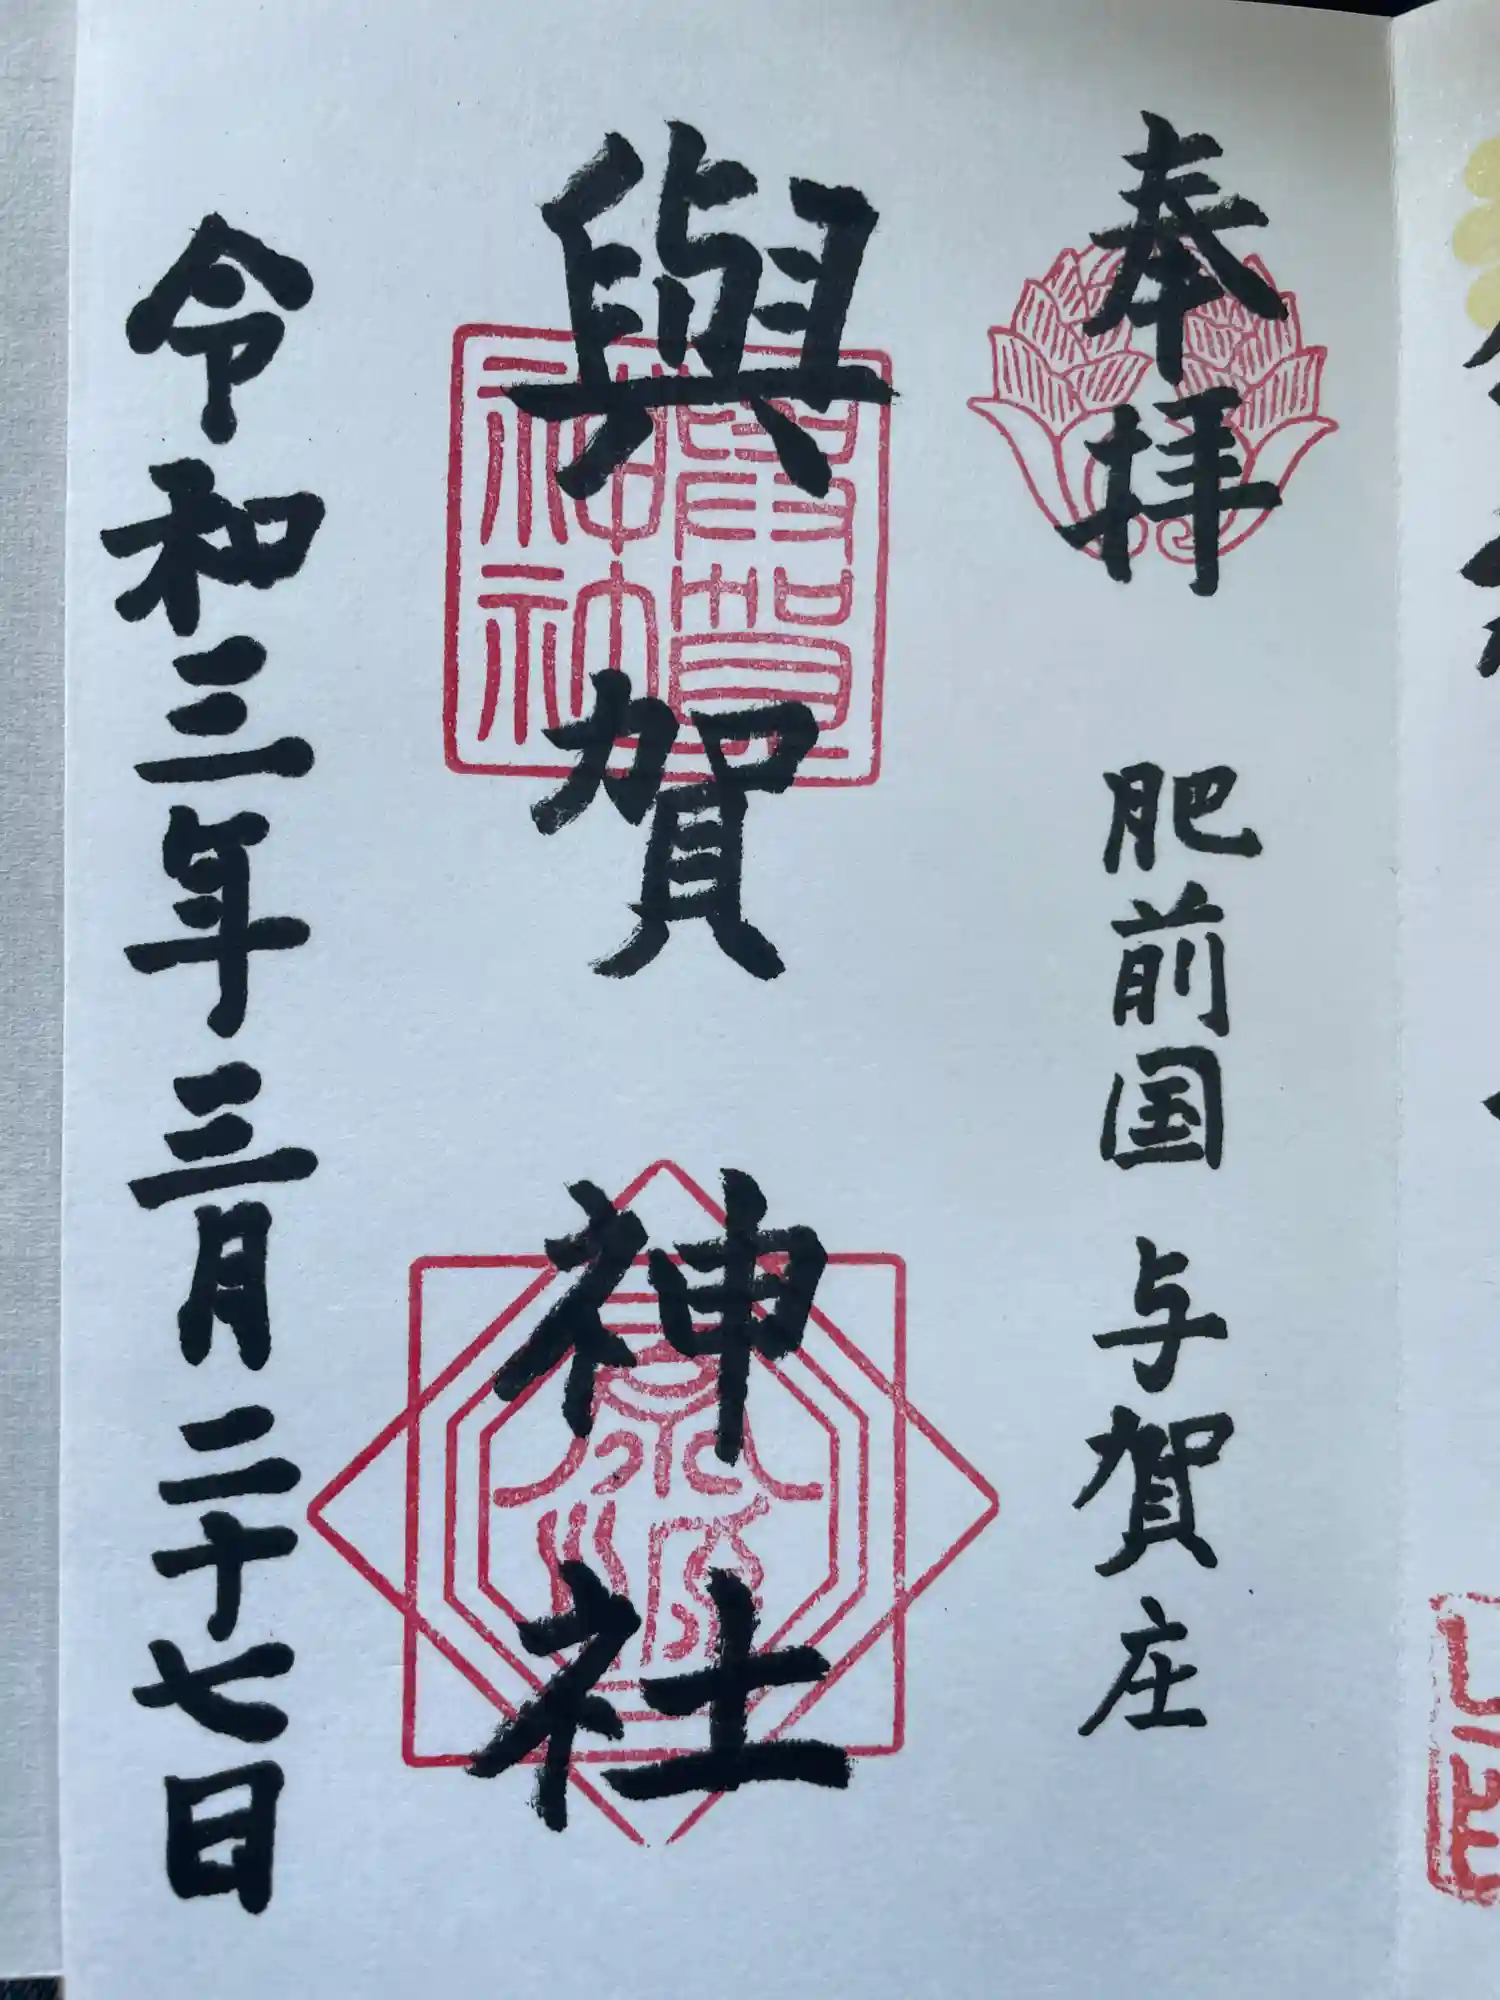 奉拝 肥前国 与賀庄
與賀神社
令和三年三月二十七日